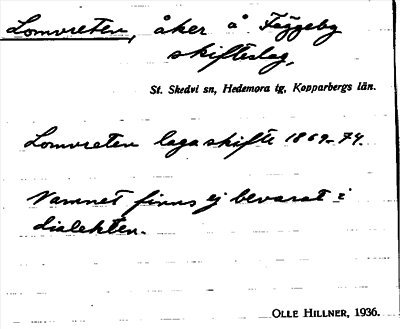 Lomvreten, åker å Fäggeby
skifteslag,
St. Skedvi sn, Hedemora tg, Kopparbergs län.
Lomvreten laga skifte 1869-74.
Namnet finns ej bevarat i
dialekten.
OLLE HILLNER, 1936.